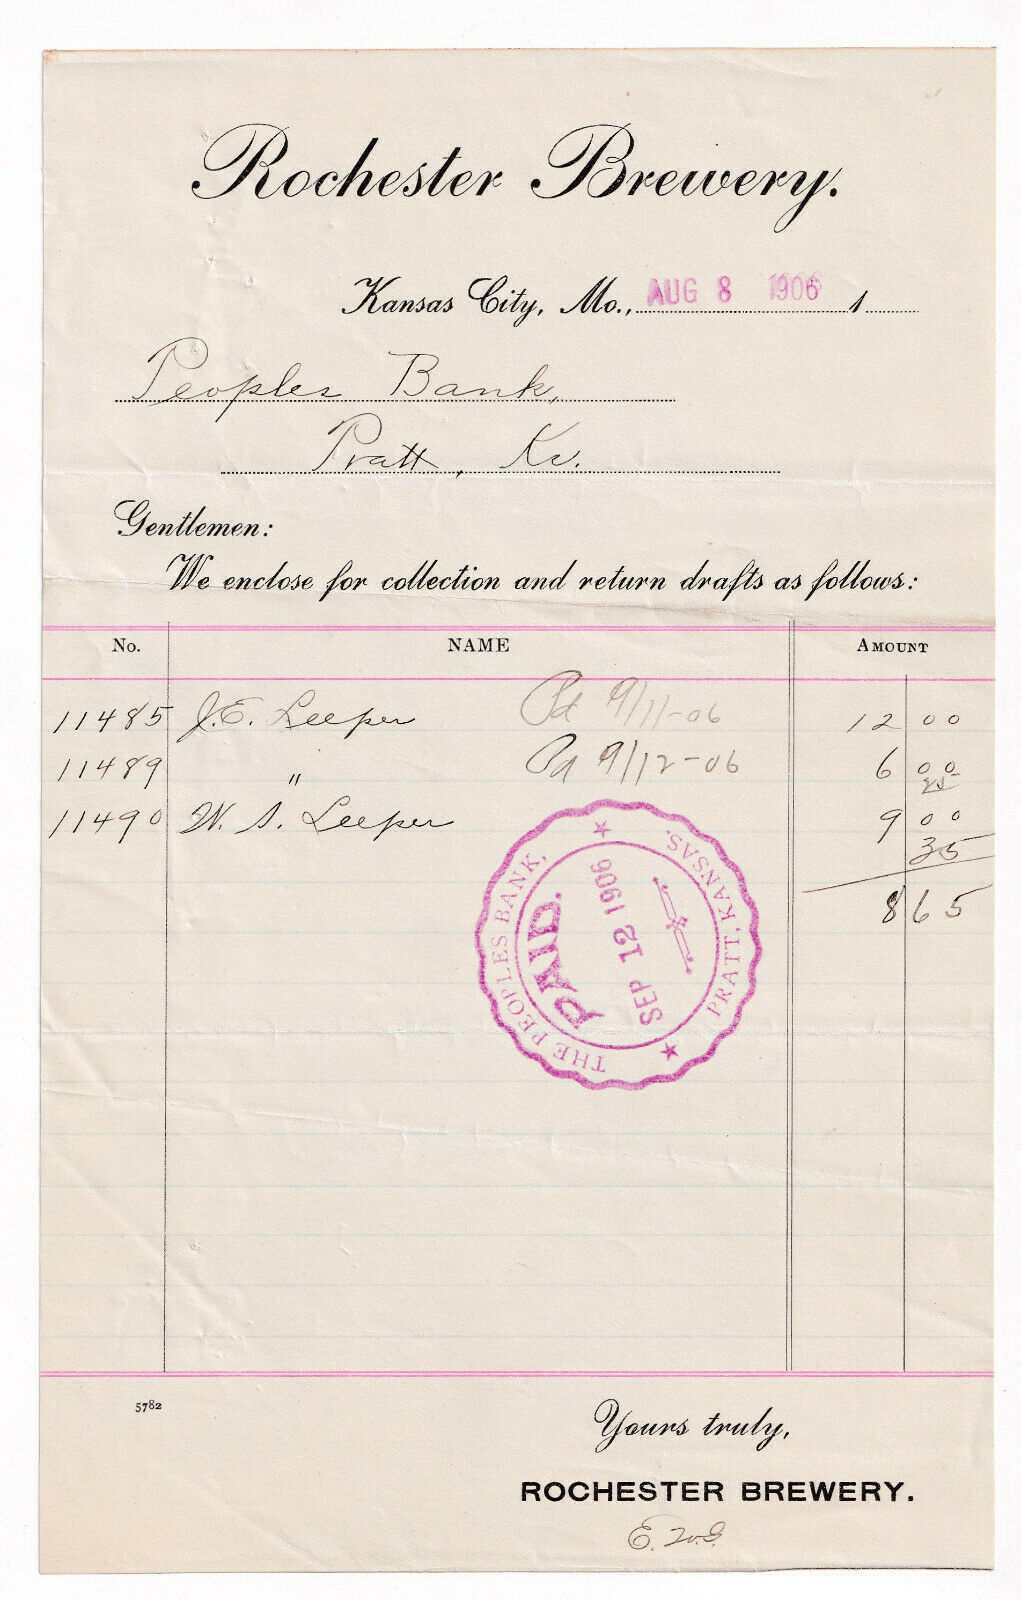 Rochester Brewery.
Kansas City, Mo., AUG 8 1906 1
Peoples Bank,
Pratt, Ks.
Gentlemen:
We enclose for collection and return drafts as follows:
No. NAME AMOUNT
11485 J.E. Leeper Pd 9/11-06 12 00
11489 " Pd 9/12-06 6 00
25
11490 W. S. Leeper 9 00
35
8 65
THE PEOPLES BANK, PRATT, KANSAS.
PAID.
SEP 12 1906
5782
Yours truly,
ROCHESTER BREWERY.